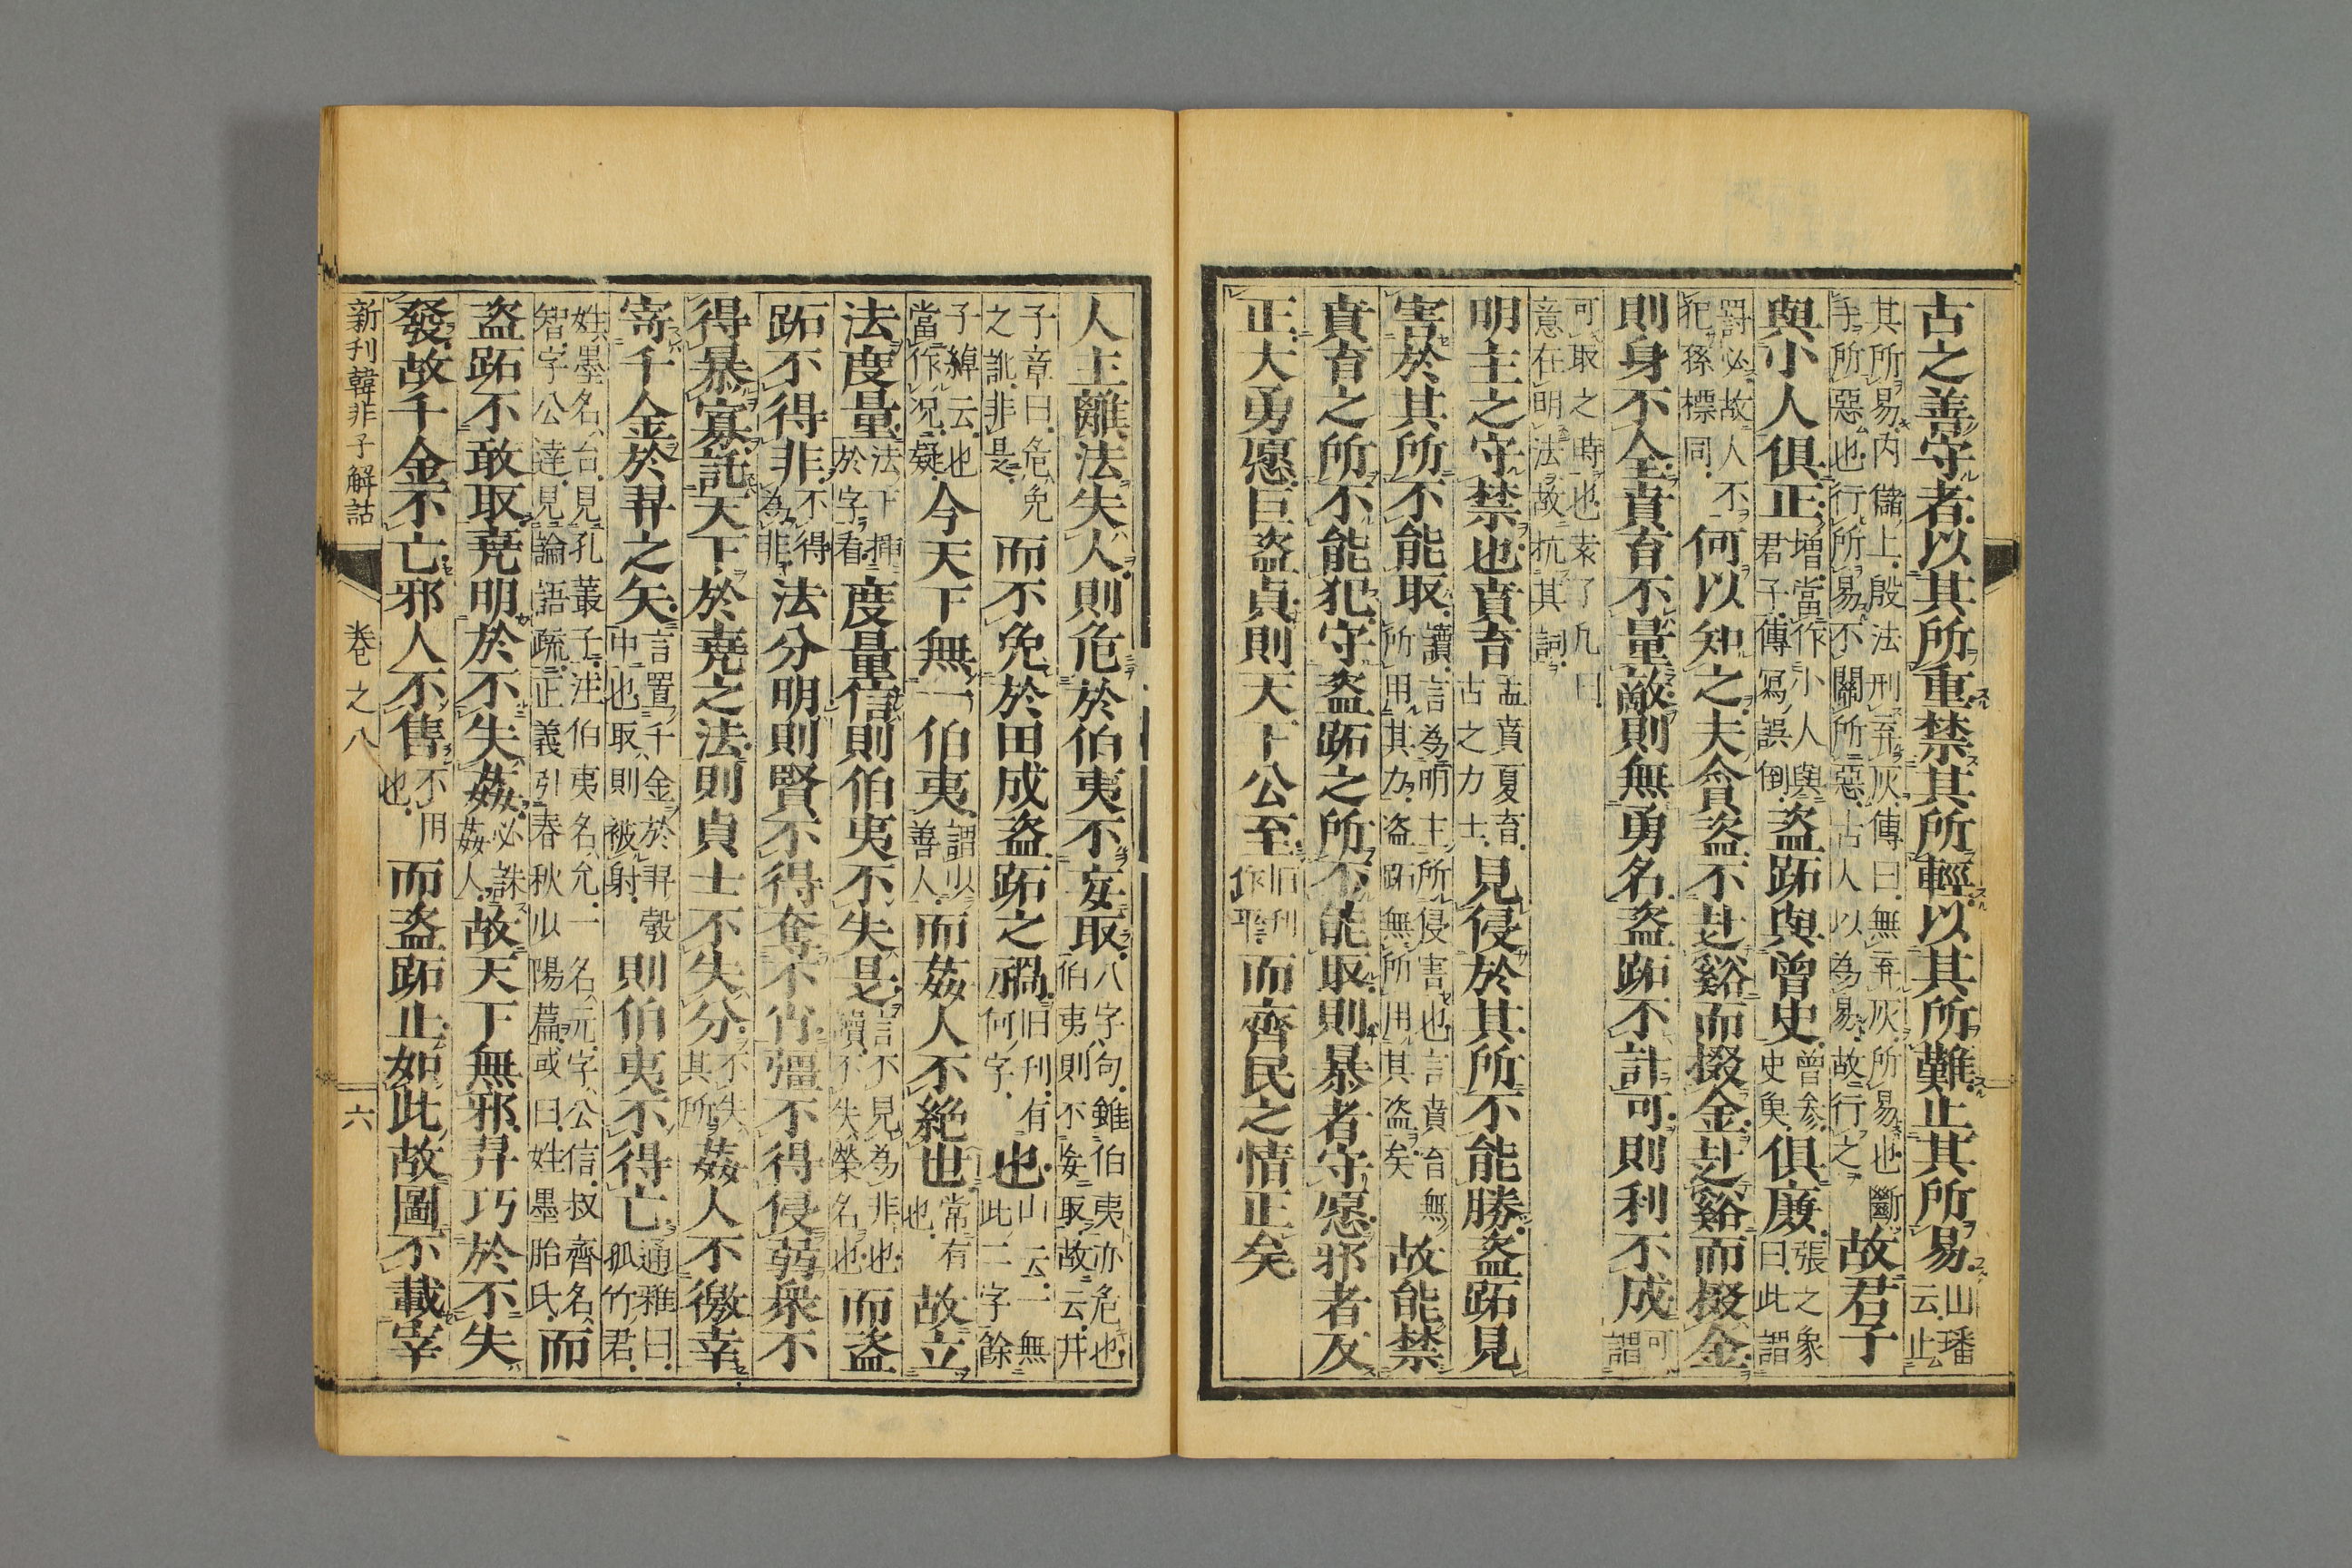 古之善守者以其所重禁其所輕以其所難止其所易山璠云止
其所易内儲上殷法刑弃灰傳曰無弃灰所易也斷手所惡也行所易不關所惡古人以為易故行之故君子
與小人俱正增當作小人與君子傳寫誤倒盜跖與曾史曾參史魚俱廉張之象曰此謂
罰必故人不犯孫標同何以知之夫貪盜不赴谿而掇金赴谿而掇金
則身不全賁育不量敵則無勇名盜跖不計可則利不成可謂
可取之時也表了凡曰意在明法故抗其詞
明主之守禁也賁育孟賁夏育古之力士見侵於其所不能勝盜跖見
害於其所不能取讀言為明主所侵害也言賁育無所用其力盜跖無所用其盜矣故能禁
賁育之所不能犯守盜跖之所不能取則暴者守愿邪者反
正大勇愿巨盜貞則天下公至旧刊作平而齊民之情正矣
人主離法失人則危於伯夷不妄取八字句雖伯夷亦危也伯夷則不妄取故云并
子章曰危免之訛非是而不免於田成盜跖之禍旧刊有何字也山云一無此二字餘
子綽云也當作况疑今天下無一伯夷謂以善人而姦人不絶世常有也故立
法度量法下挿於字看度量信則伯夷不失是言不見為非也讀不失榮名也而盜
跖不得非不得為非法分明則賢不得奪不肖彊不得侵弱衆不
得暴寡託天下於堯之法則貞士不失分不失其所姦人不徼幸
寄千金於羿之矢言置千金於羿彀中也取則被射則伯夷不得亡通雅曰孤竹君
姓墨名台見孔叢子注伯夷名允一名元字公信叔齊名智字公達見論語疏正義引春秋少陽篇或曰姓墨胎氏而
盜跖不敢取堯明於不失姦必誅姦人故天下無邪羿巧於不失
發故千金不亡邪人不售不用也而盜跖止如此故圖不載宰
新刊韓非子解詁
卷之八
六